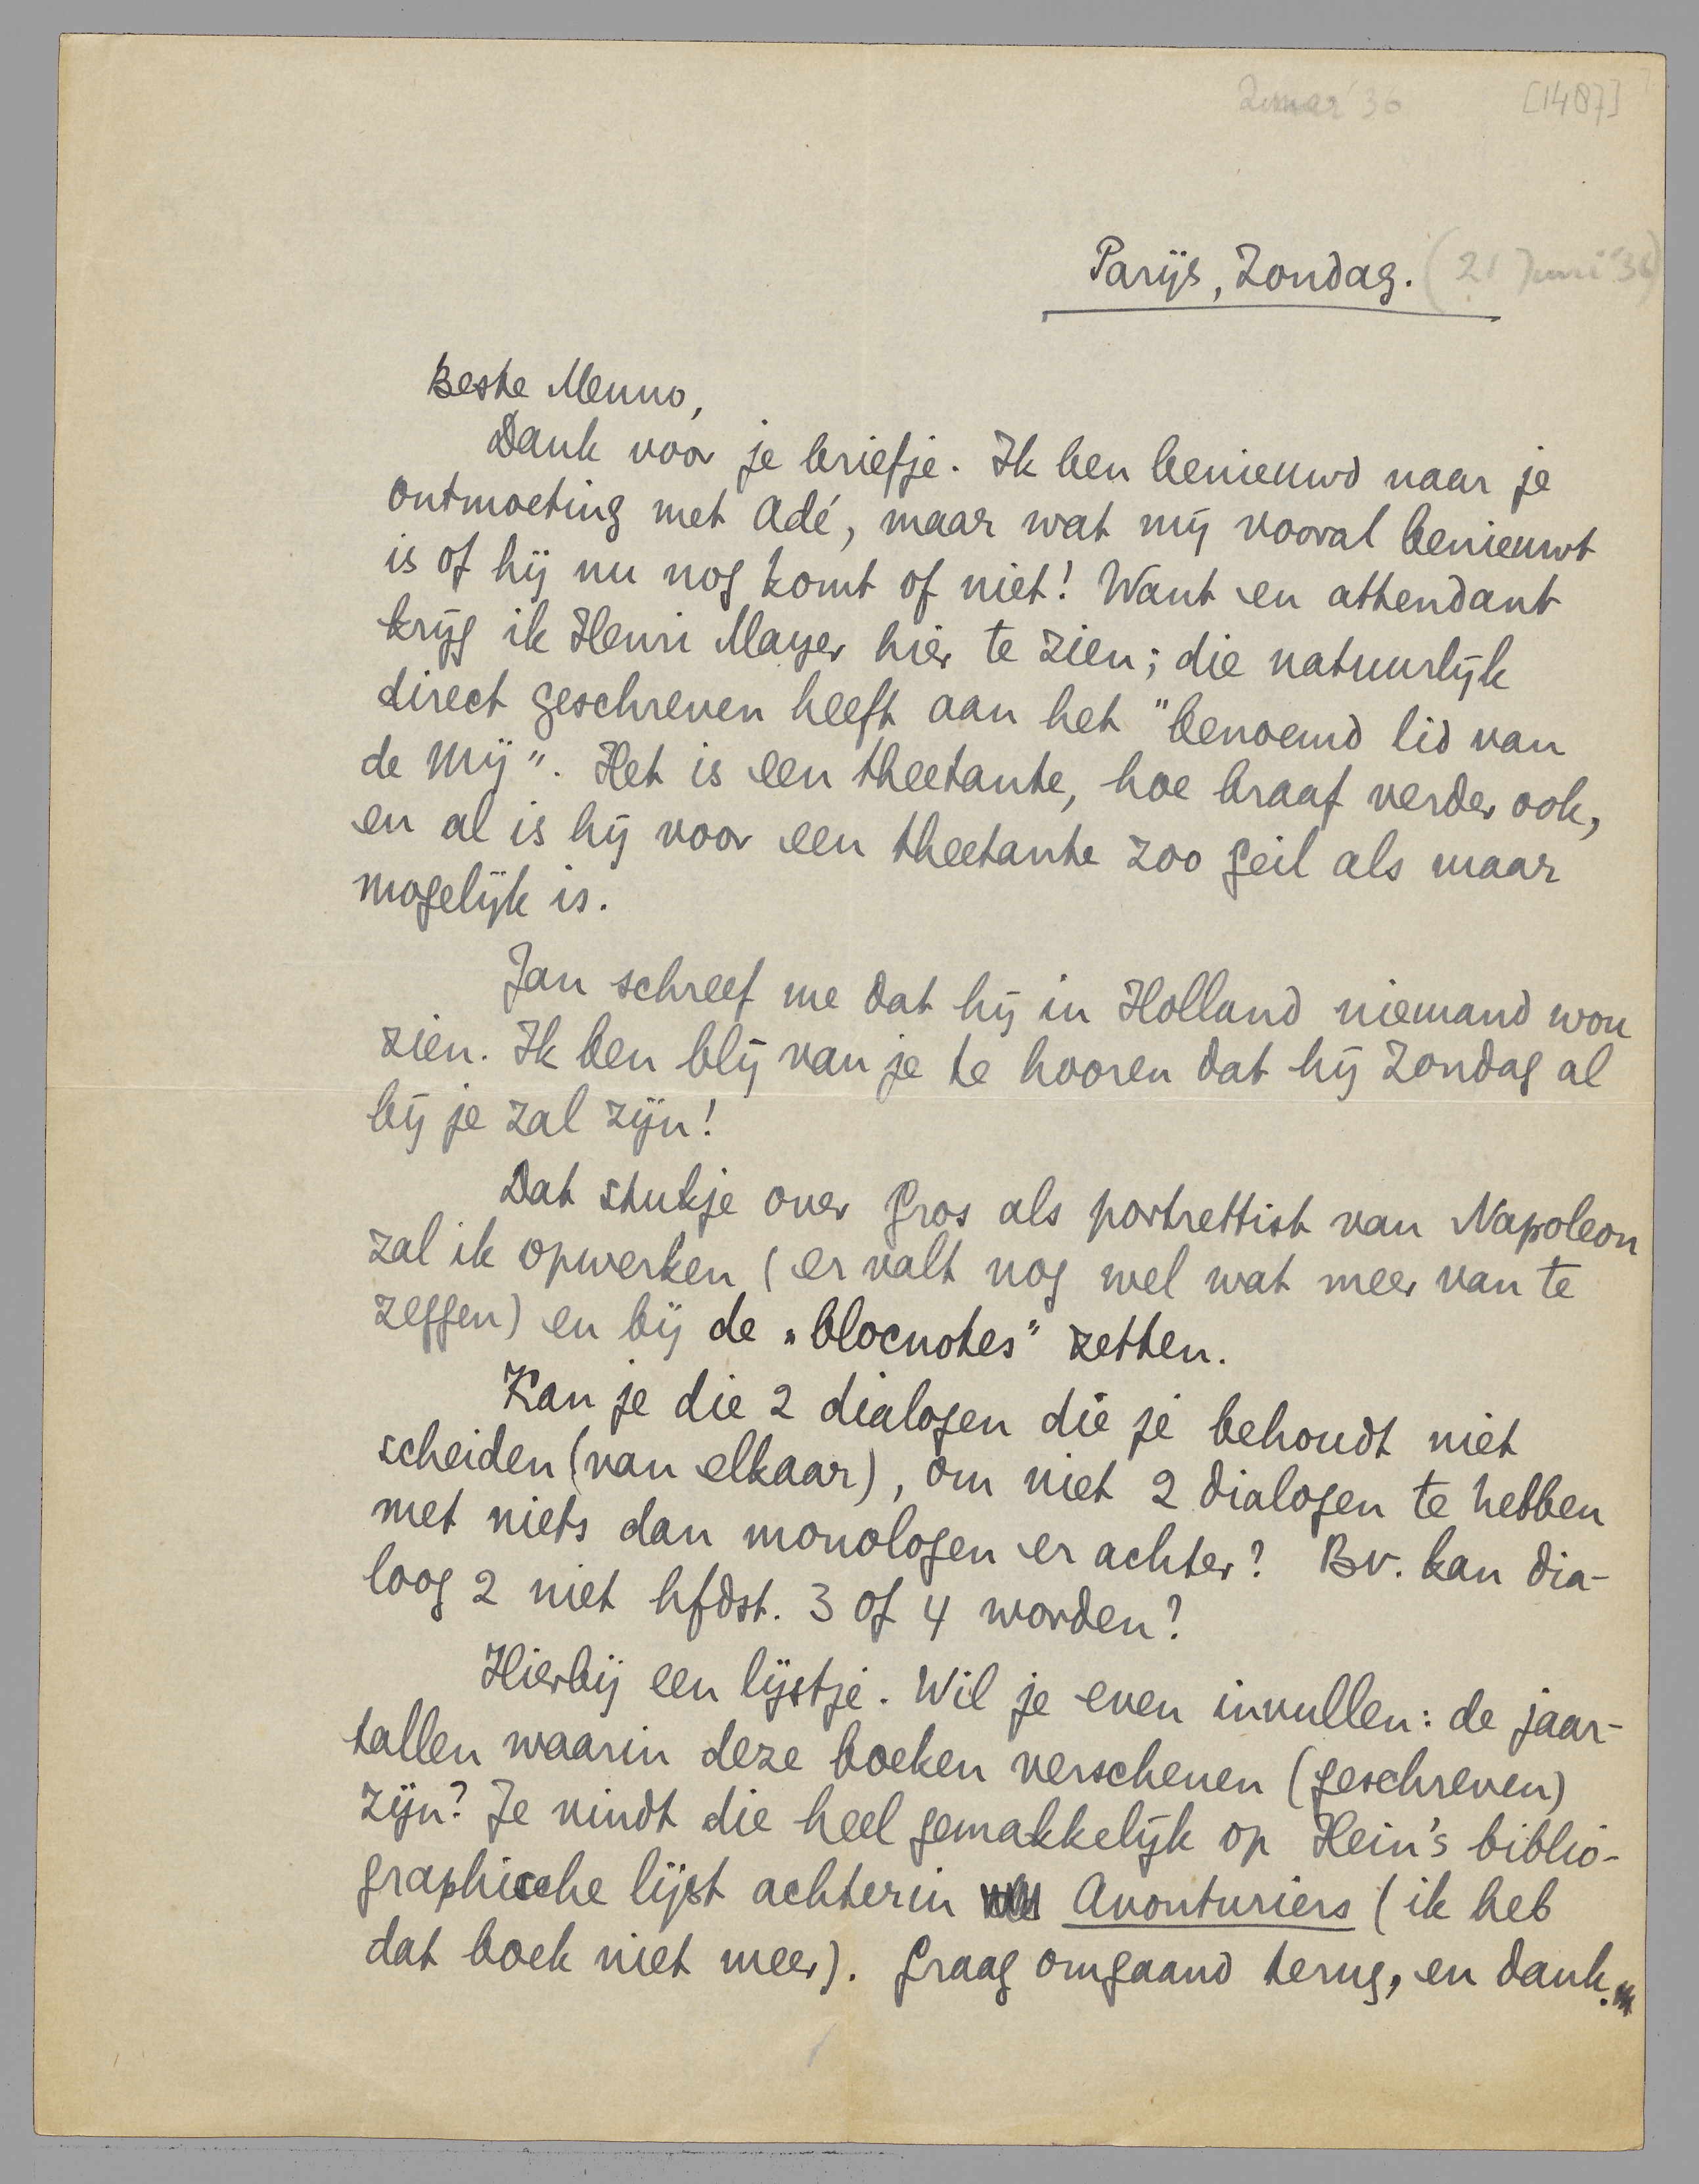 [1487]
Parijs, Zondag. (21 Juni '36)
Beste Menno,
Dank voor je briefje. Ik ben benieuwd naar je
ontmoeting met Adé, maar wat mij vooral benieuwt
is of hij nu nog komt of niet! Want en attendant
krijg ik Henri Mayer hier te zien; die natuurlijk
direct geschreven heeft aan het "benoemd lid van
de Mij". Het is een theetante, hoe braaf verder ook,
en al is hij voor een theetante zoo geil als maar
mogelijk is.
Jan schreef me dat hij in Holland niemand wou
zien. Ik ben blij van je te hooren dat hij Zondag al
bij je zal zijn!
Dat stukje over Gros als portrettist van Napoleon
zal ik opwerken (er valt nog wel wat meer van te
zeggen) en bij de „blocnotes" zetten.
Kan je die 2 dialogen die je behoudt niet
scheiden (van elkaar), om niet 2 dialogen te hebben
met niets dan monologen er achter? Bv. kan dia-
loog 2 niet hfdst. 3 of 4 worden?
Hierbij een lijstje. Wil je even invullen: de jaar-
tallen waarin deze boeken verschenen (geschreven)
zijn? Je vindt die heel gemakkelijk op Hein's biblio-
graphische lijst achterin Avonturiers (ik heb
dat boek niet meer). Graag omgaand terug, en dank.